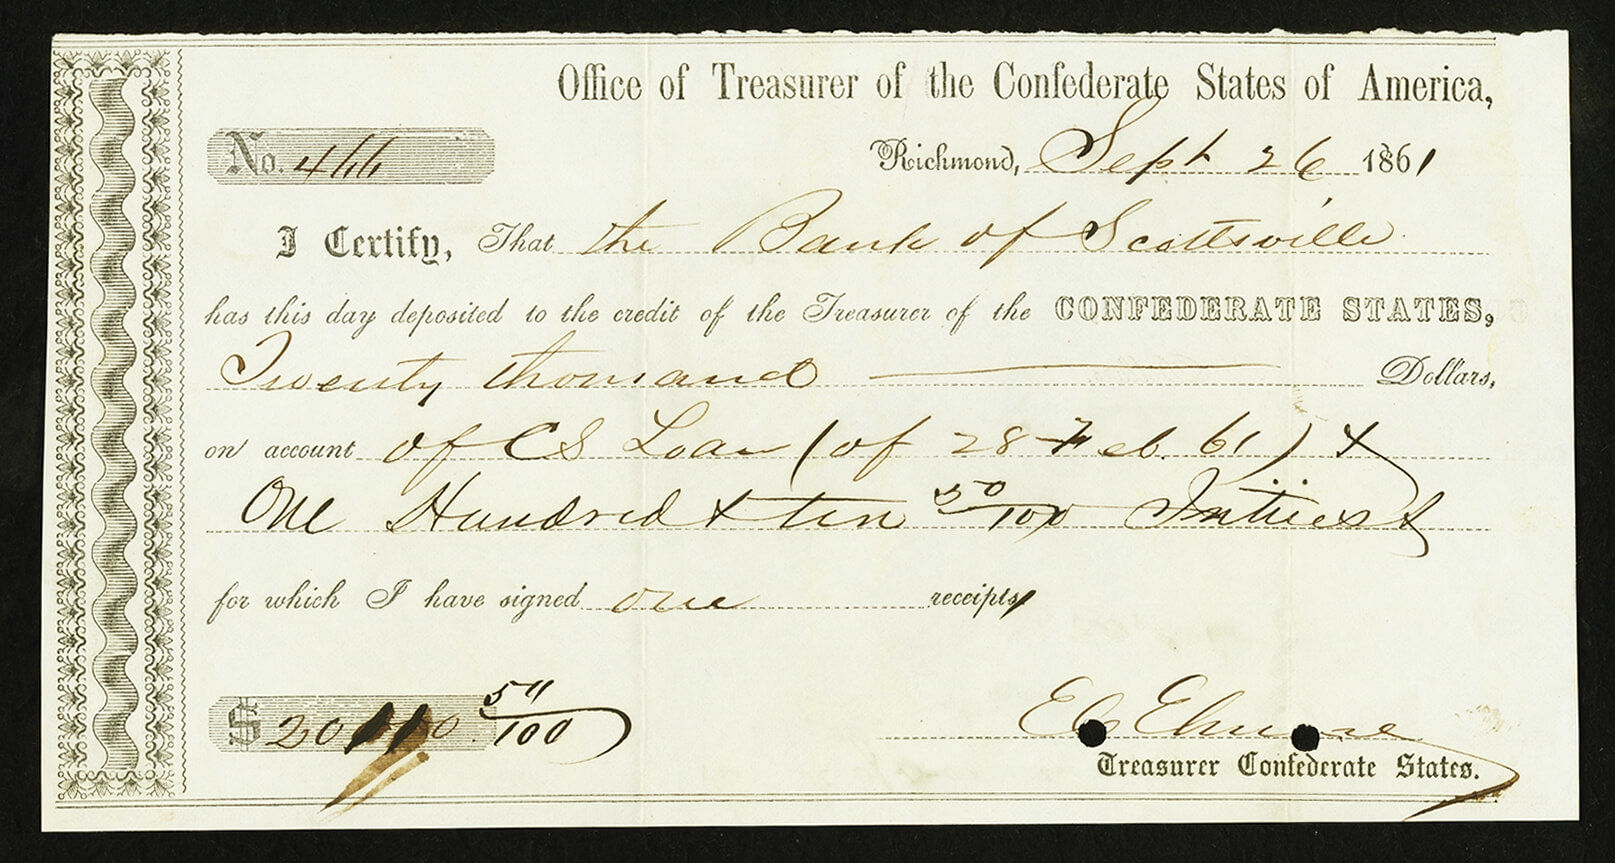 Office of Treasurer of the Confederate States of America,
No. 466
Richmond, Sept 26 1861
I Certify, That the Bank of Scottsville
has this day deposited to the credit of the Treasurer of the CONFEDERATE STATES,
Twenty thousand Dollars,
on account of CS Loan (of 28 Feb. 61) &
One Hundred & ten 50/100 Interest
for which I have signed one receipts
$ 20110 50/100
E C Elmore
Treasurer Confederate States.